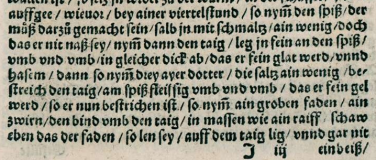 auffgee / wieuor / bey ainer viertelstund / so nym̃ den spiß / der
můß darzů gemacht sein / salb jn mit schmaltz / ain wenig / doch
das er nit naß sey / nym̃ dann den taig / leg jn fein an den spiß /
vmb vnd vmb / in gleicher dick ab / das er fein glat werd / vnnd
hafem / dann so nym̃ drey ayer dotter / die saltz ain wenig / be-
streich den taig / am spiß fleissig vmb vnd vmb / das er fein gel
werd / so er nun bestrichen ist / so nym̃ ain groben faden / ain
zwirn / den bind vmb den taig / in massen wie ain raiff / schaw
eben das der faden / so len sey / auff dem taig lig / vnnd gar nit
J iij einbeiß /